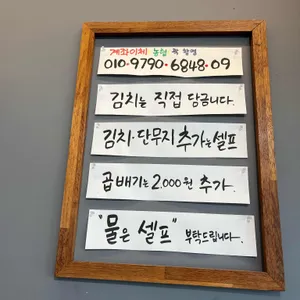 계좌이체 농협
010-9790-6848-09
김치는 직접 담금니다.
김치·단무지 추가는 셀프
곱배기는 2.000원 추가.
"물은 셀프" 부탁드립니다.